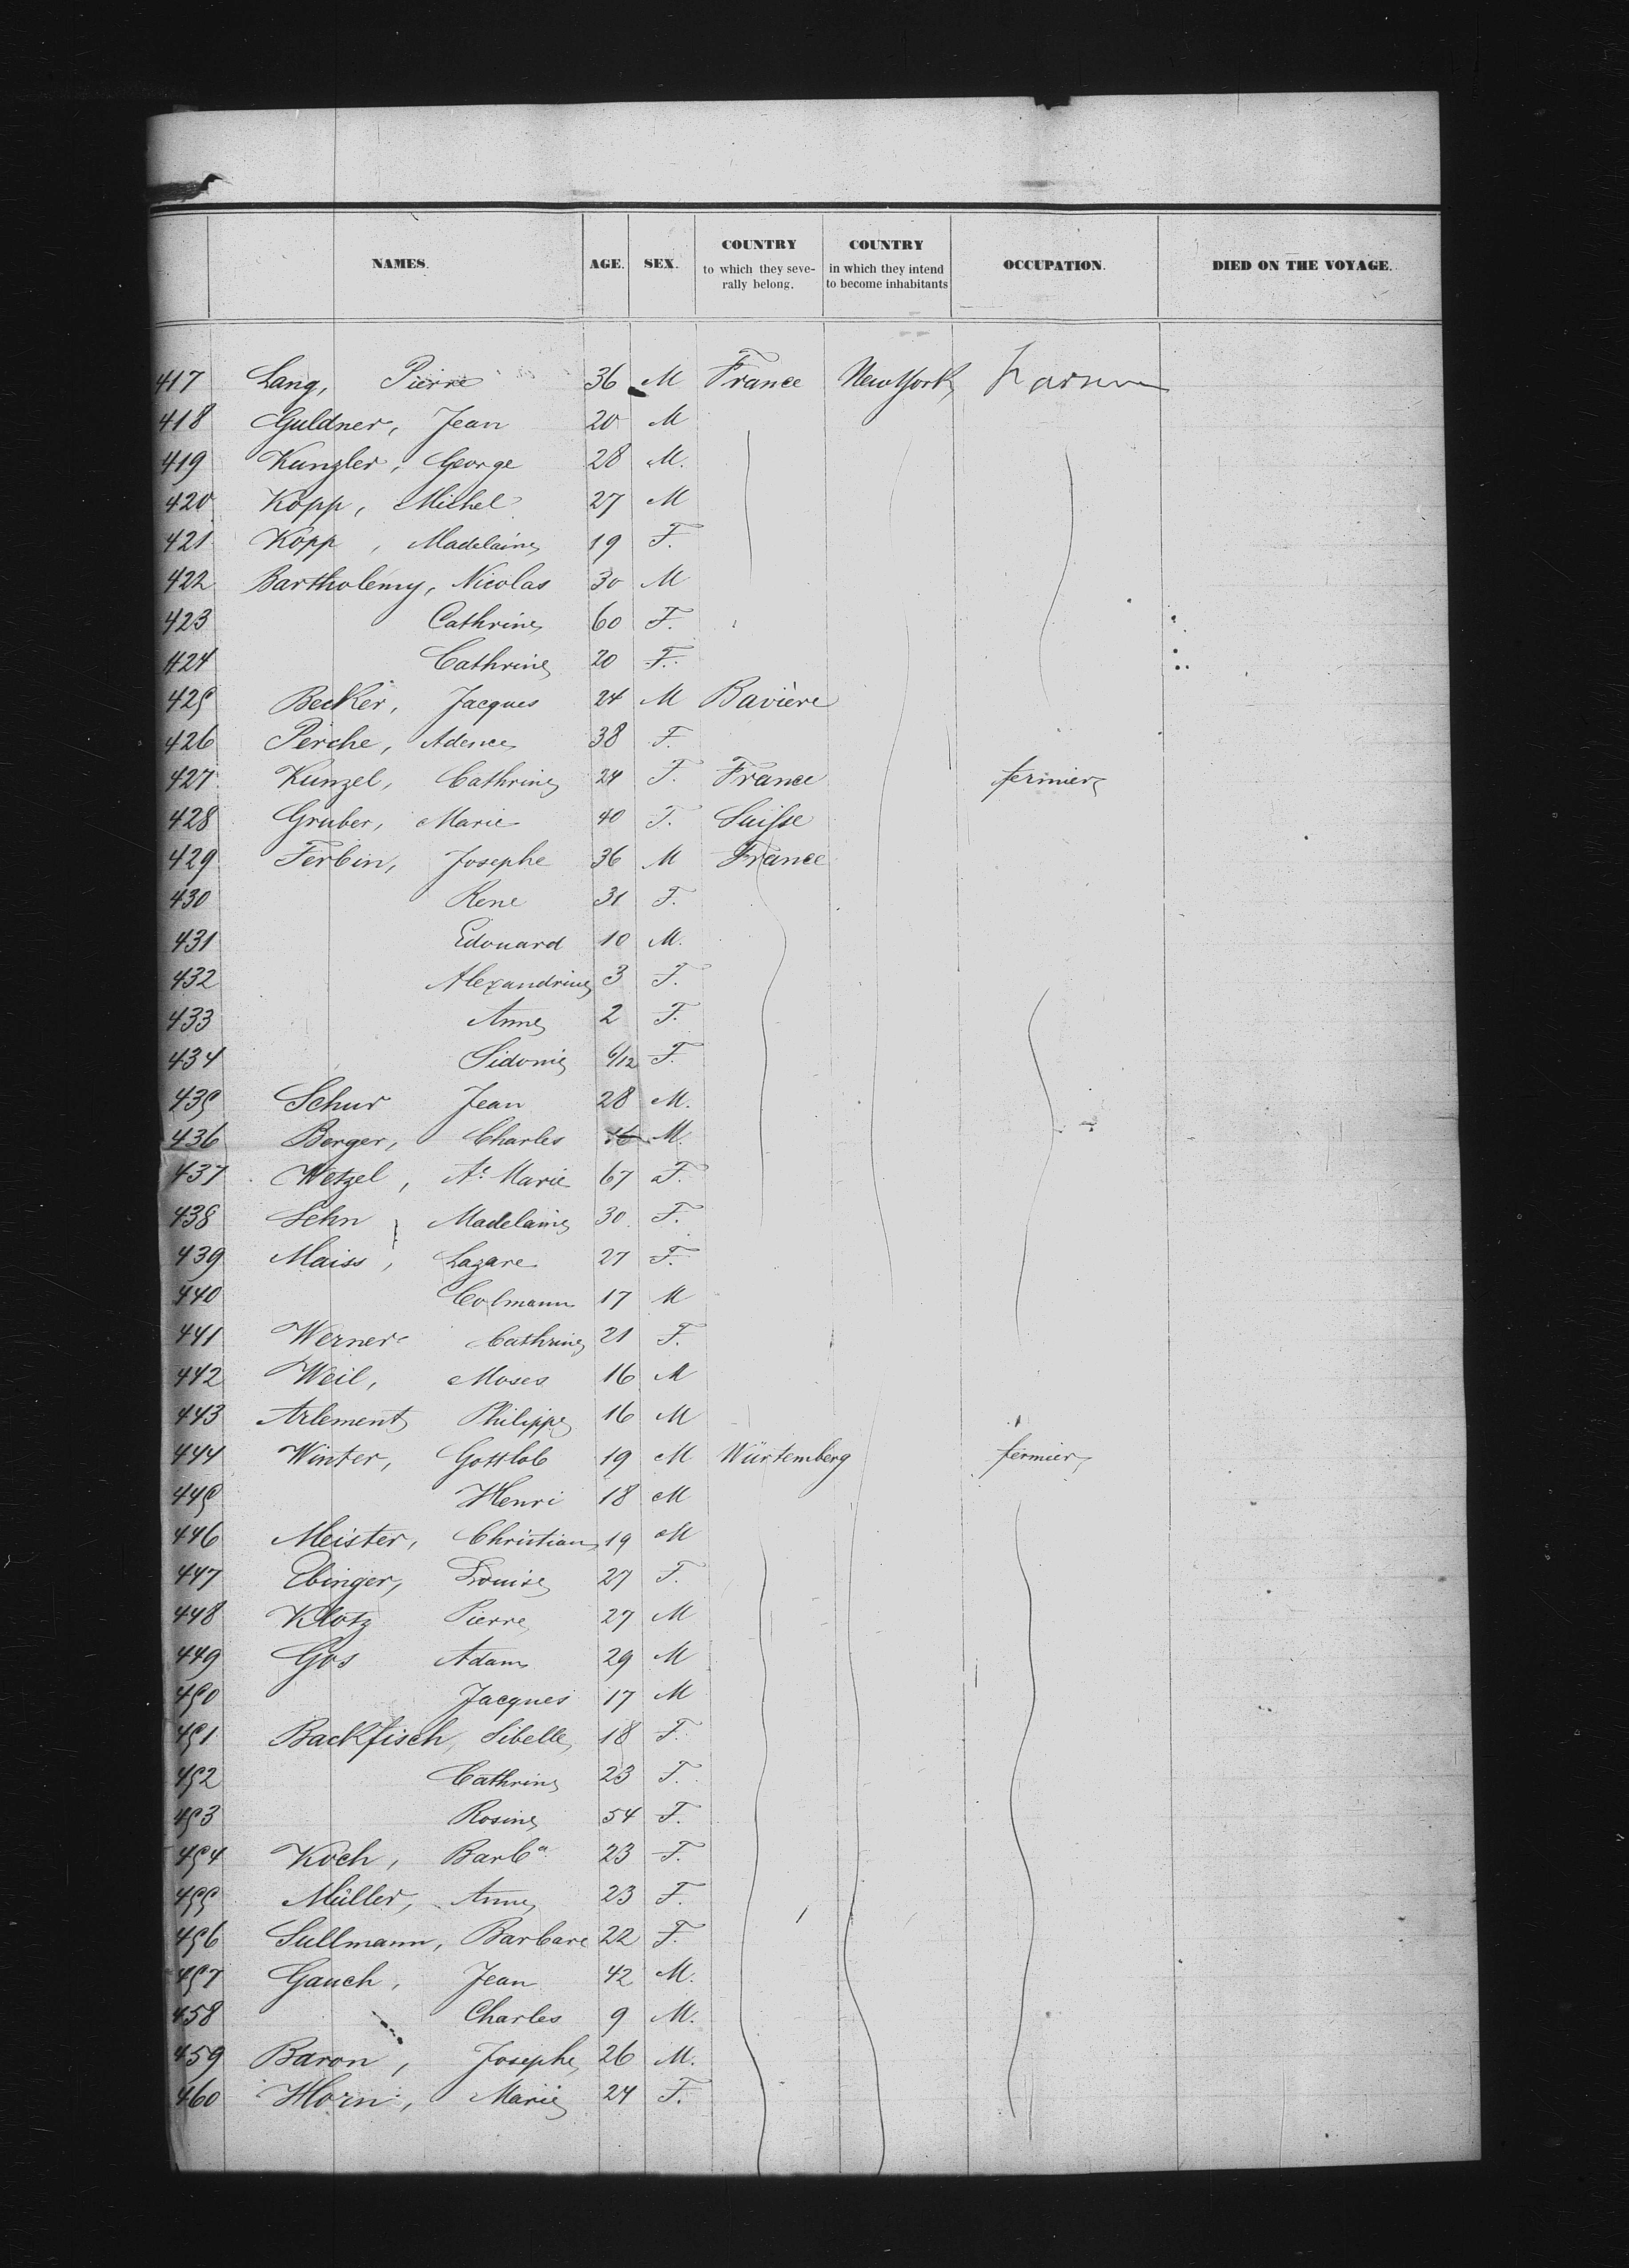 NAMES. AGE. SEX. COUNTRY to which they seve-rally belong. COUNTRY in which they intend to become inhabitants OCCUPATION. DIED ON THE VOYAGE.
417 Lang, Pierre 36 M France New York
418 Guldner, Jean 20 M
419 Kunzler, George 28 M.
420 Kopp, Michel 27 M
421 Kopp, Madelaine 19 F.
422 Bartholemy, Nicolas 30 M
423 Cathrine 60 F.
424 Cathrine 20 F.
425 Becker, Jacques 24 M Bavière
426 Perche, 38 F.
427 Kunzel, Cathrine 24 F. France fermier
428 Gruber, Marie 40 F. Suisse
429 Ferbin, Josephe 36 M France
430 Rene 31 F.
431 Edouard 10 M.
432 Alexandrine 3 F.
433 Anne 2 F.
434 Sidonie 6/12 F.
435 Schur Jean 28 M.
436 Berger, Charles M.
437 Wetzel, Ae Marie 67 F.
438 Sehn, Madelaine 30 F.
439 Maiss, Lazare 27 F.
440 Colmann 17 M
441 Werner Cathrine 21 F.
442 Weil, Moses 16 M
443 Arlement Philippe 16 M
444 Winter, Gottlob 19 M Würtemberg fermier
445 Henri 18 M
446 Meister, Christian 19 M
447 Ebinger, Louise 27 F.
448 Klotz Pierre 27 M
449 Gos Adam 29 M
450 Jacques 17 M
451 Backfisch, Sibelle 18 F.
452 Cathrine 23 F.
453 Rosine 54 F.
454 Koch, Barba 23 F.
455 Müller, Anne 23 F.
456 Sullmann, Barbare 22 F.
457 Gauch, Jean 42 M.
458 Charles 9 M.
459 Baron, Josephe 26 M.
460 Horn, Marie 24 F.